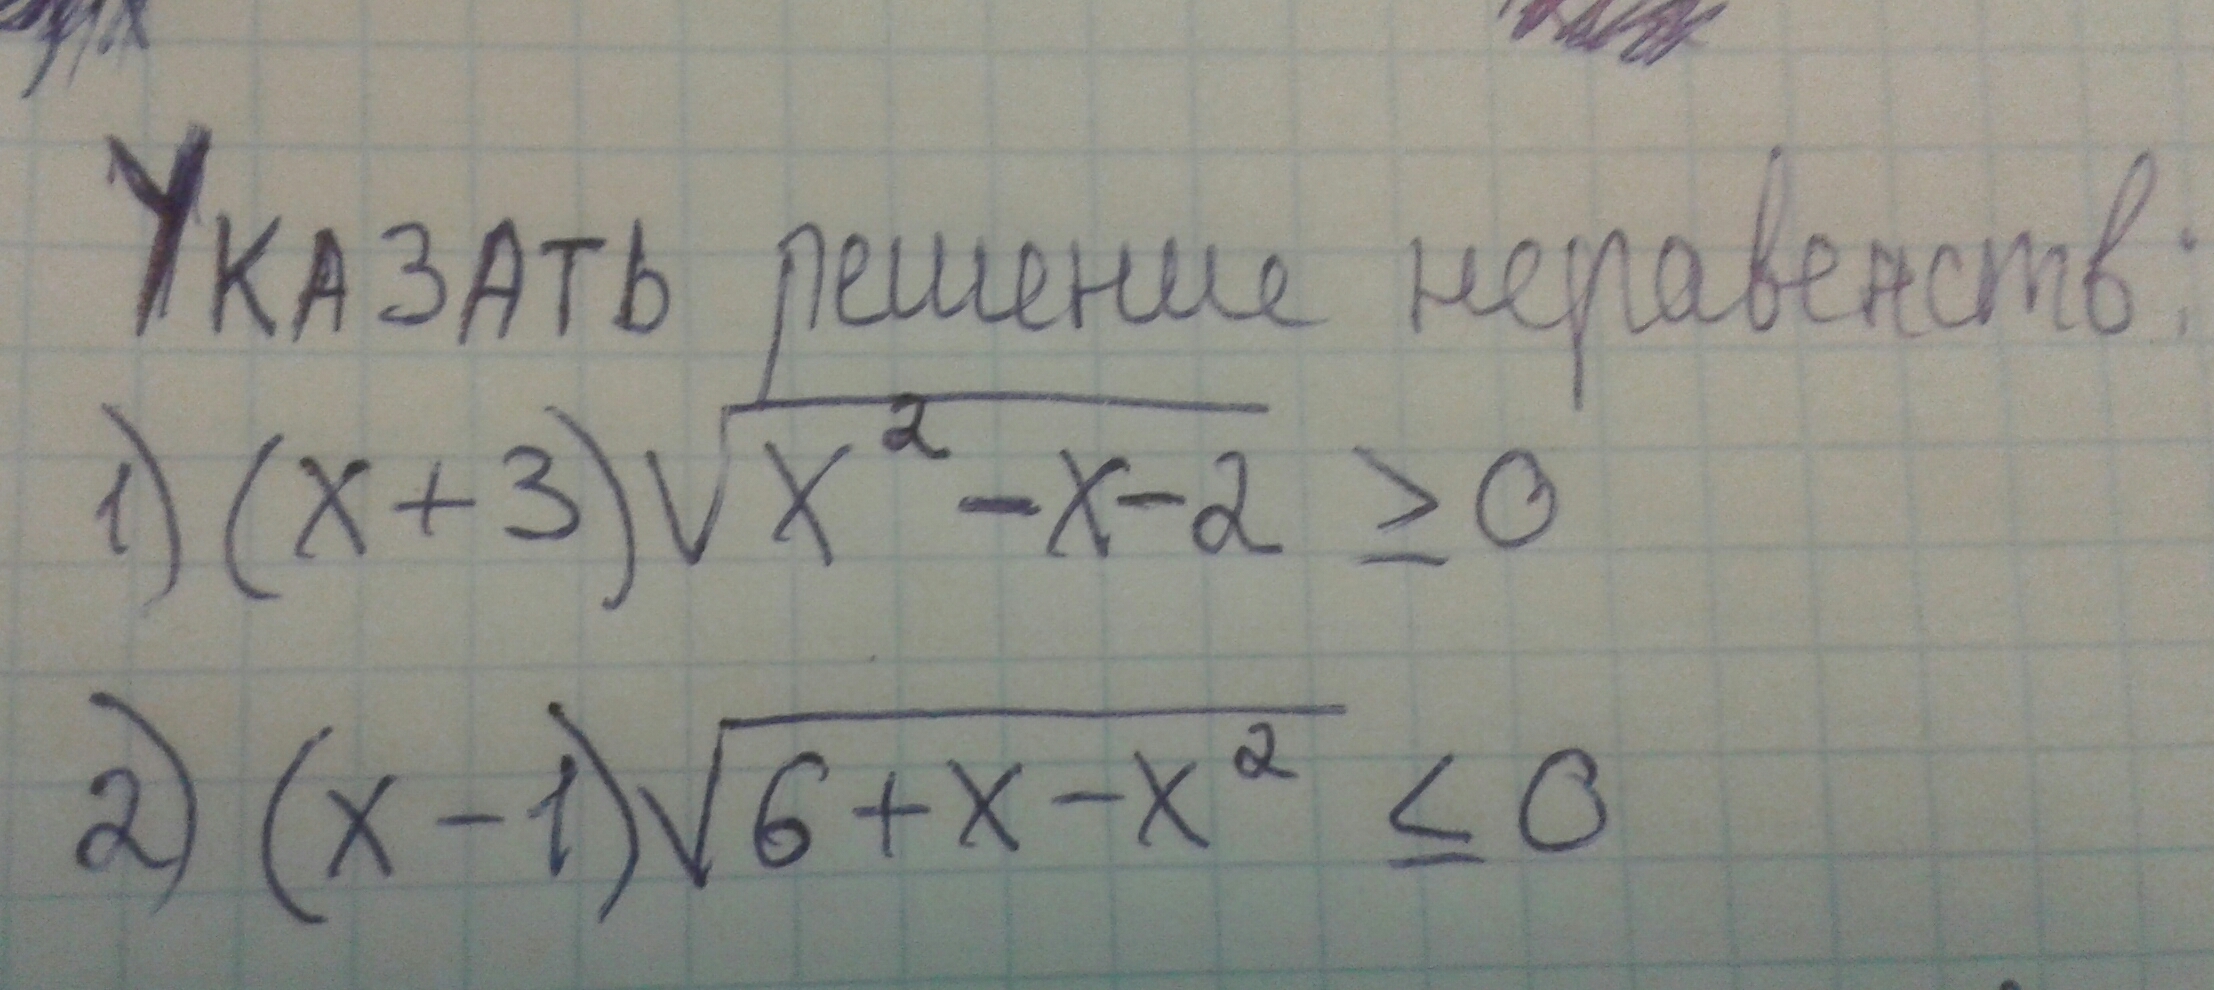 Указать решение неравенств:
1) (x+3)√x²-x-2 ≥ 0
2) (x-1)√6+x-x² ≤ 0